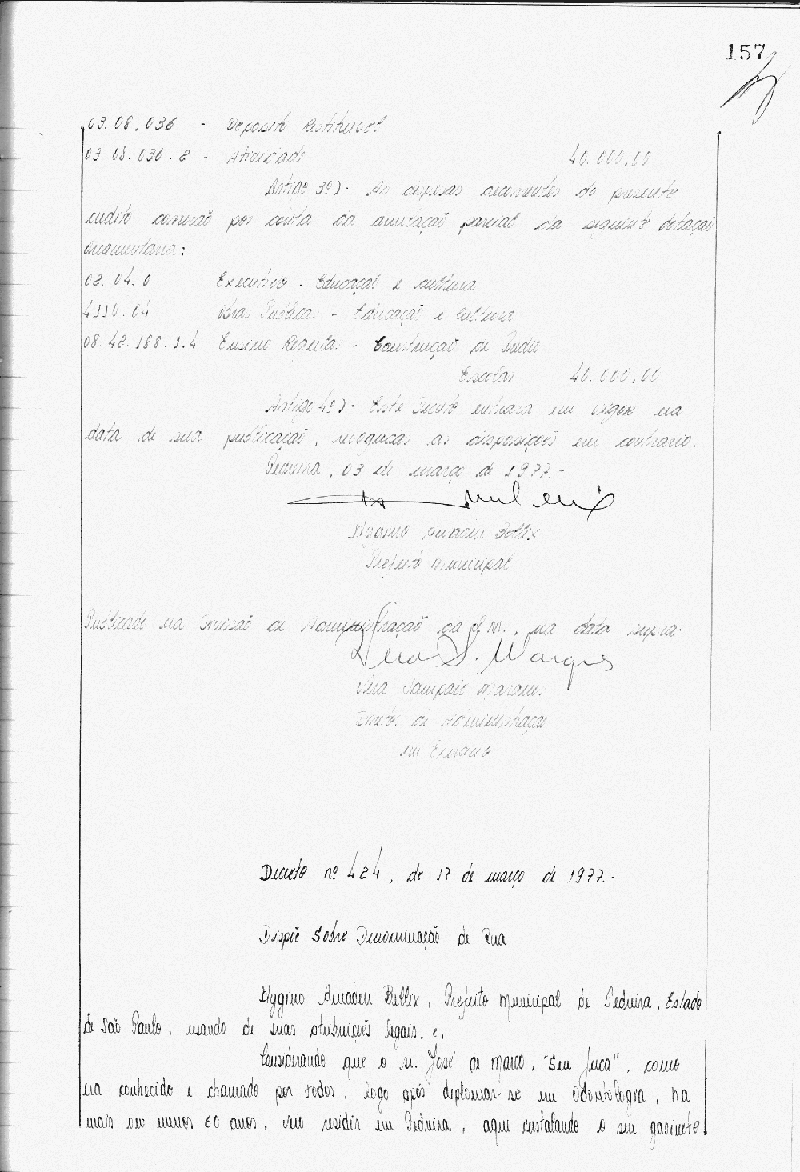 157
03.08.036 - Deposito Restituivel
03.08.036.2 - Atividade 40.000,00
Artigo 3º)- As despesas decorrentes do presente
credito correrão por conta da anulação parcial da seguinte dotação
orçamentaria:
02.04.0 Executivo - Educação e cultura
4110.04 Obras Publicas - Educação e Cultura
08.42.188.1.4 Ensino Regular - Construção de Predio
Escolar 40.000,00
Artigo 4º)- Este Decreto entrará em vigor na
data de sua publicação, revogadas as disposições em contrario.
Pedreira, 03 de março de 1977.-
Hygino Amadeu Bellix
Prefeito Municipal
Publicado na Divisão de Administração da P.M., na data supra.
Dora S. Marques
Sampaio
de Administração
em Exercicio
Decreto nº 424, de 17 de março de 1977.-
Dispõe Sobre Denominação de Rua
Hygino Amadeu Bellix, Prefeito Municipal de Pedreira, Estado
de São Paulo, usando de suas atribuições legais, e,
Considerando que o sr. José de Marco, "Seu Juca", como
era conhecido e chamado por todos, logo após diplomar-se em Odontologia, ha
mais ou menos 60 anos, veio residir em Pedreira, aqui instalando o seu gabinete